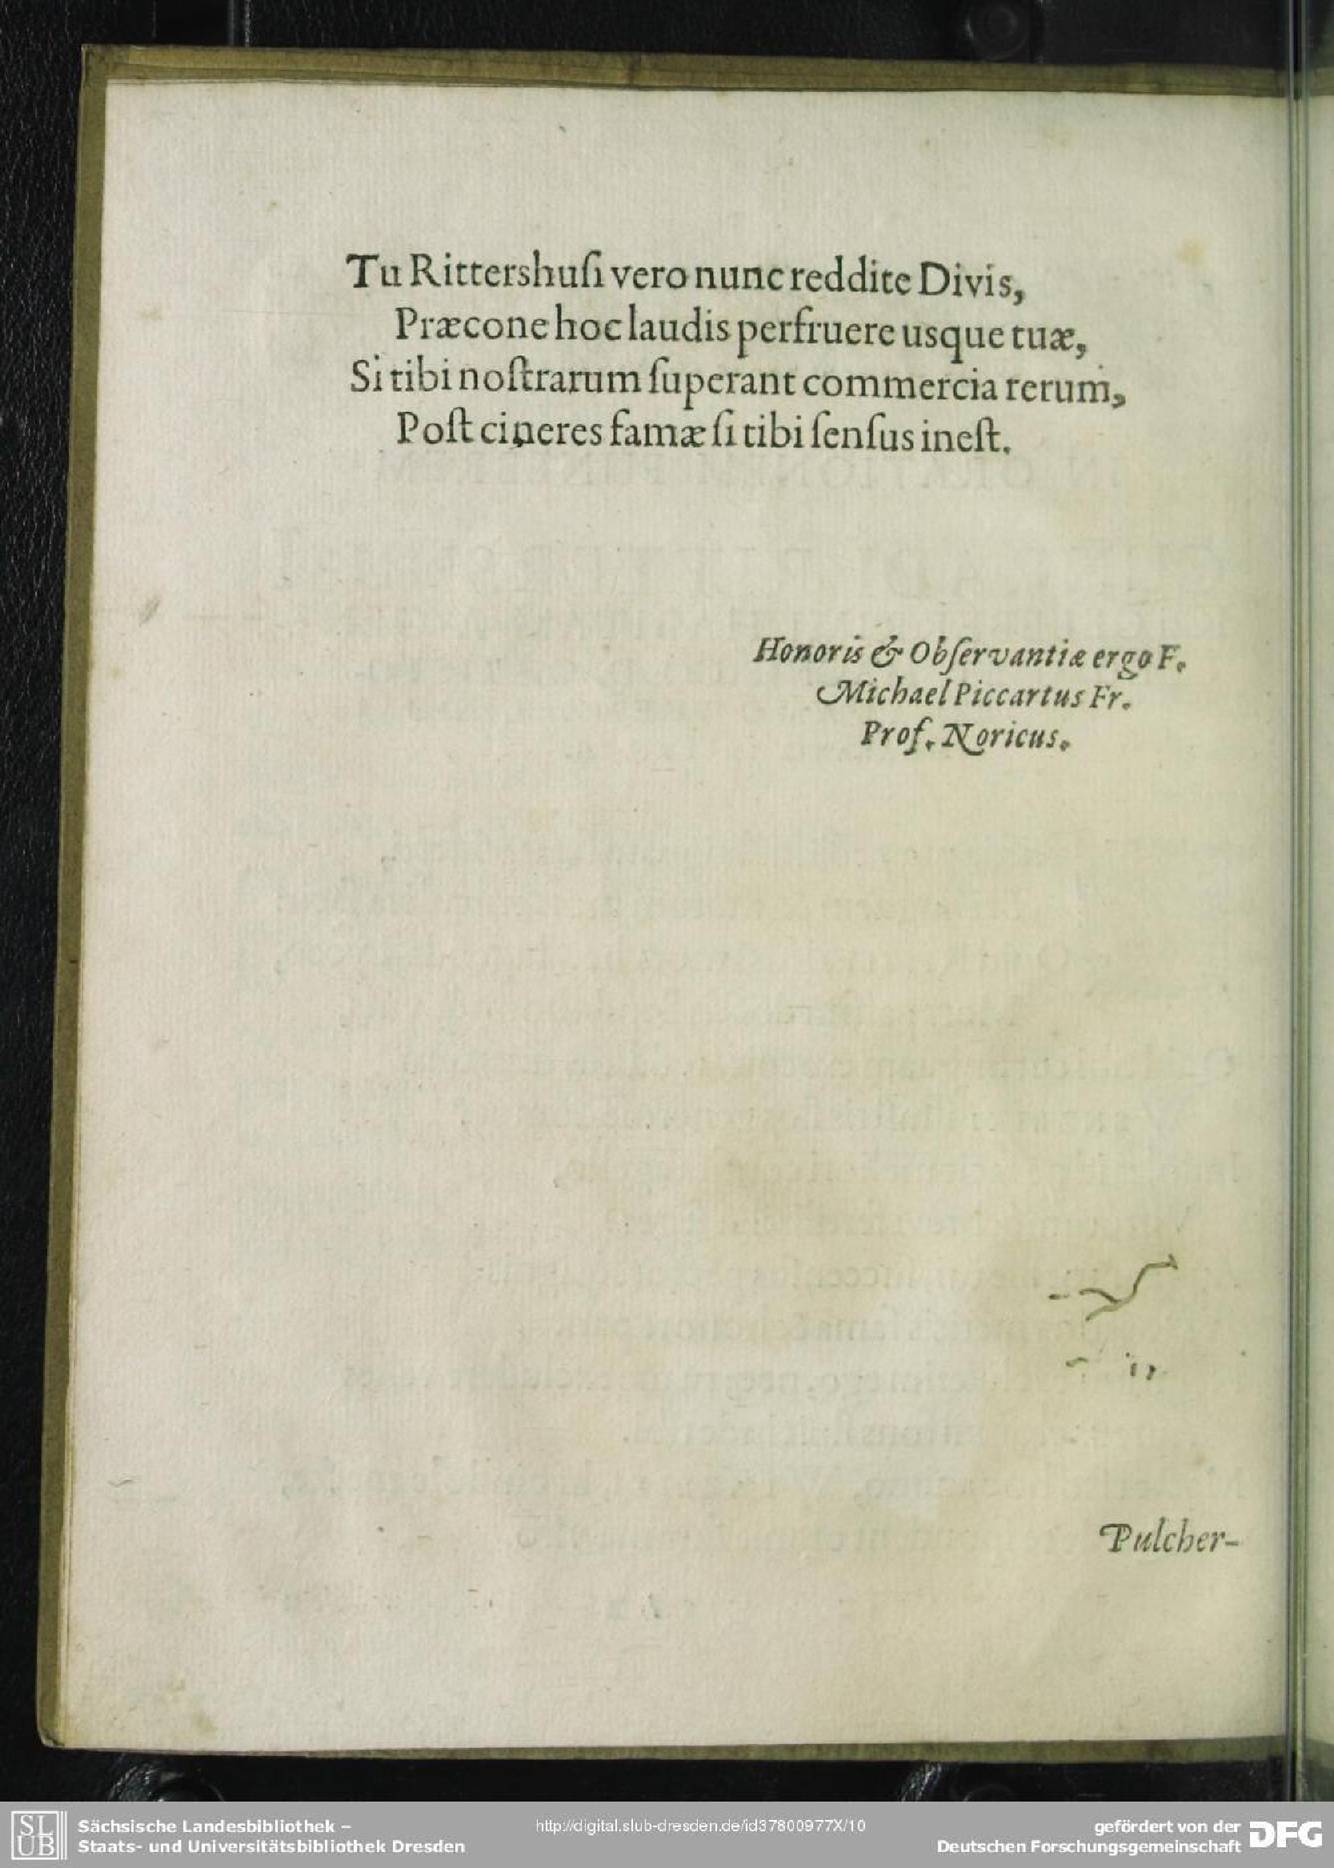 Tu Rittershuſi vero nunc reddite Divis,
Præcone hoc laudis perfruere usque tuæ,
Si tibi noſtrarum ſuperant commercia rerum,
Poſt cineres famæ ſi tibi ſenſus ineſt.
Honoris & Obſervantiæ ergo F.
Michael Piccartus Fr.
Prof. Noricus.
Pulcher-
SLUB
Sächsische Landesbibliothek –
Staats- und Universitätsbibliothek Dresden
http://digital.slub-dresden.de/id37800977X/10
gefördert von der
Deutschen Forschungsgemeinschaft
DFG